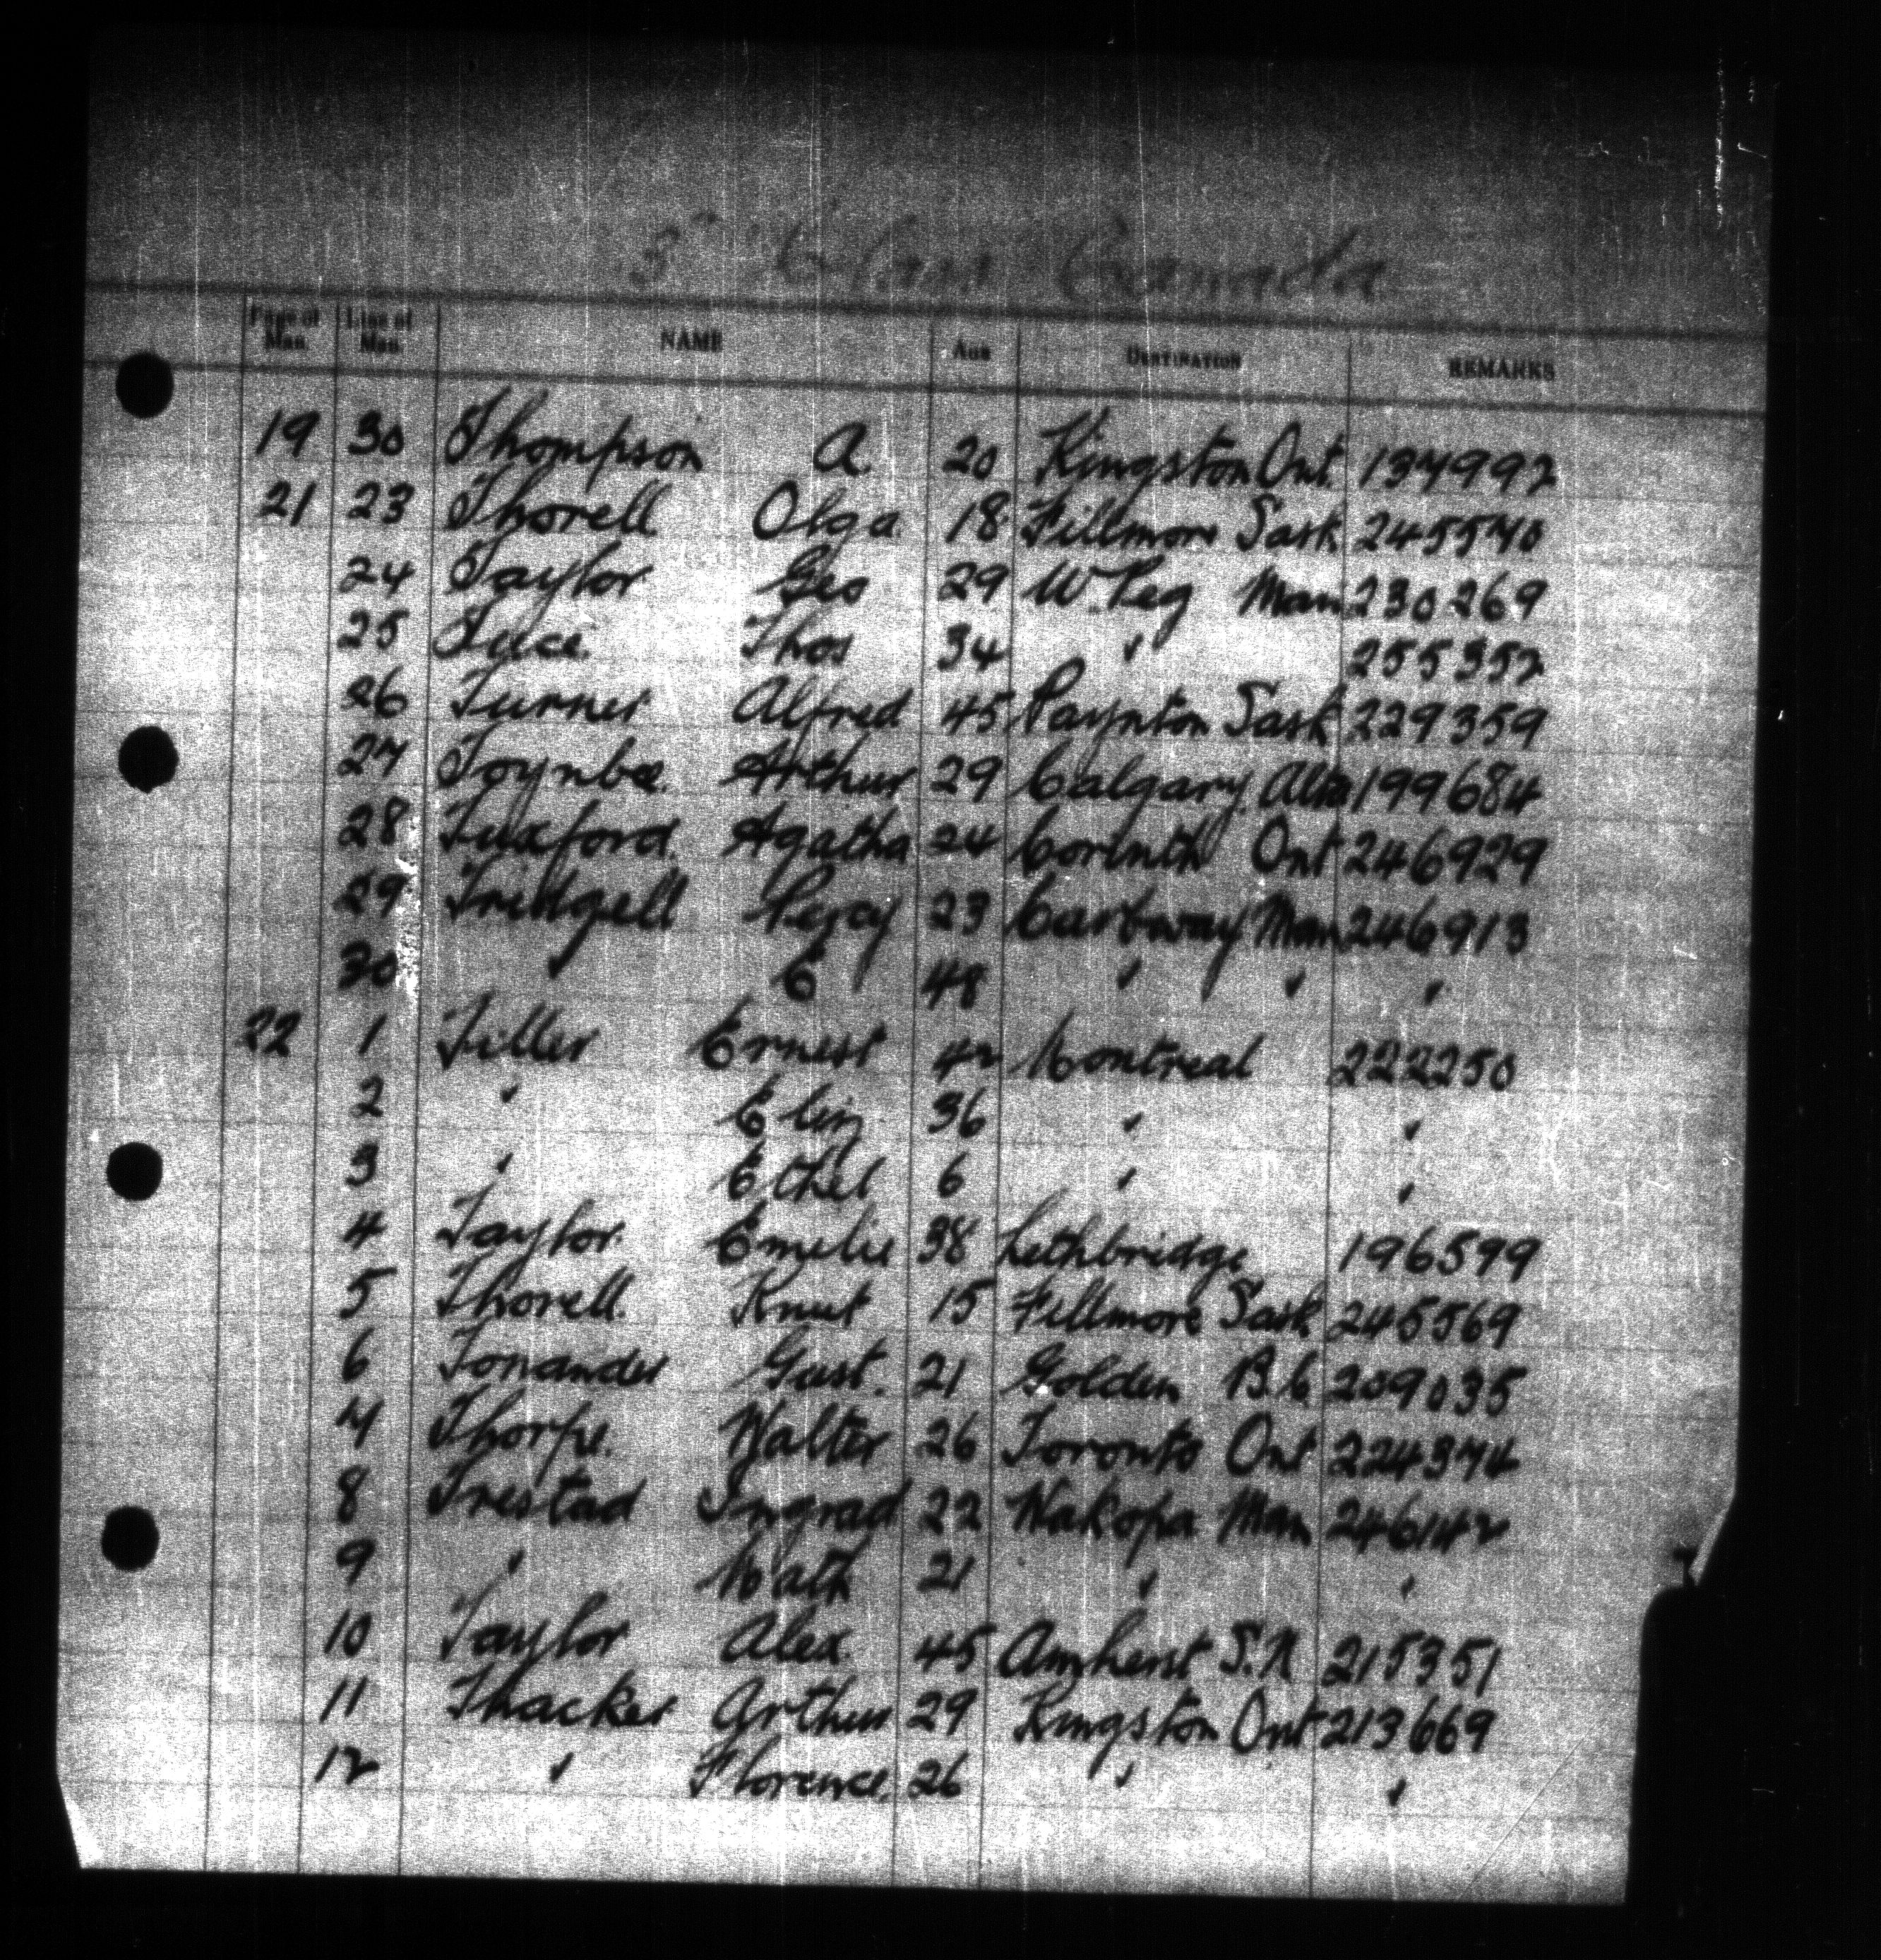 3rd Class Canada
Page of Man. Line of Man. NAME AGE DESTINATION REMARKS
19 30 Thompson A. 20 Kingston Ont. 134992
21 23 Thorell Olga 18 Fillmore Sask 245570
24 Taylor Geo 29 W. Peg Man 230269
25 Tuce. Thos 34 " 255352
26 Turner Alfred 45 Paynton Sask 229359
27 Toynbee. Arthur 29 Calgary Alta 199684
28 Tuxford. Agatha 24 Corinth Ont 246929
29 Tridgell Percy 23 Man 246913
30 " E 48 " " "
22 1 Tiller Ernest 42 Montreal 222250
2 " Eliz 36 " "
3 " Ethel 6 " "
4 Taylor. Emelie 38 Lethbridge 196599
5 Thorell. Knut 15 Fillmore Sask 245569
6 Tonander Gust. 21 Golden B.C 209035
7 Thorpe. Walter 26 Toronto Ont 224374
8 Trestad Ingrad 22 Wakopa Man 246142
9 " Math 21 " "
10 Taylor Alex. 45 Amherst S.N 215351
11 Thacker Arthur 29 Kingston Ont 213669
12 " Florence. 26 " "